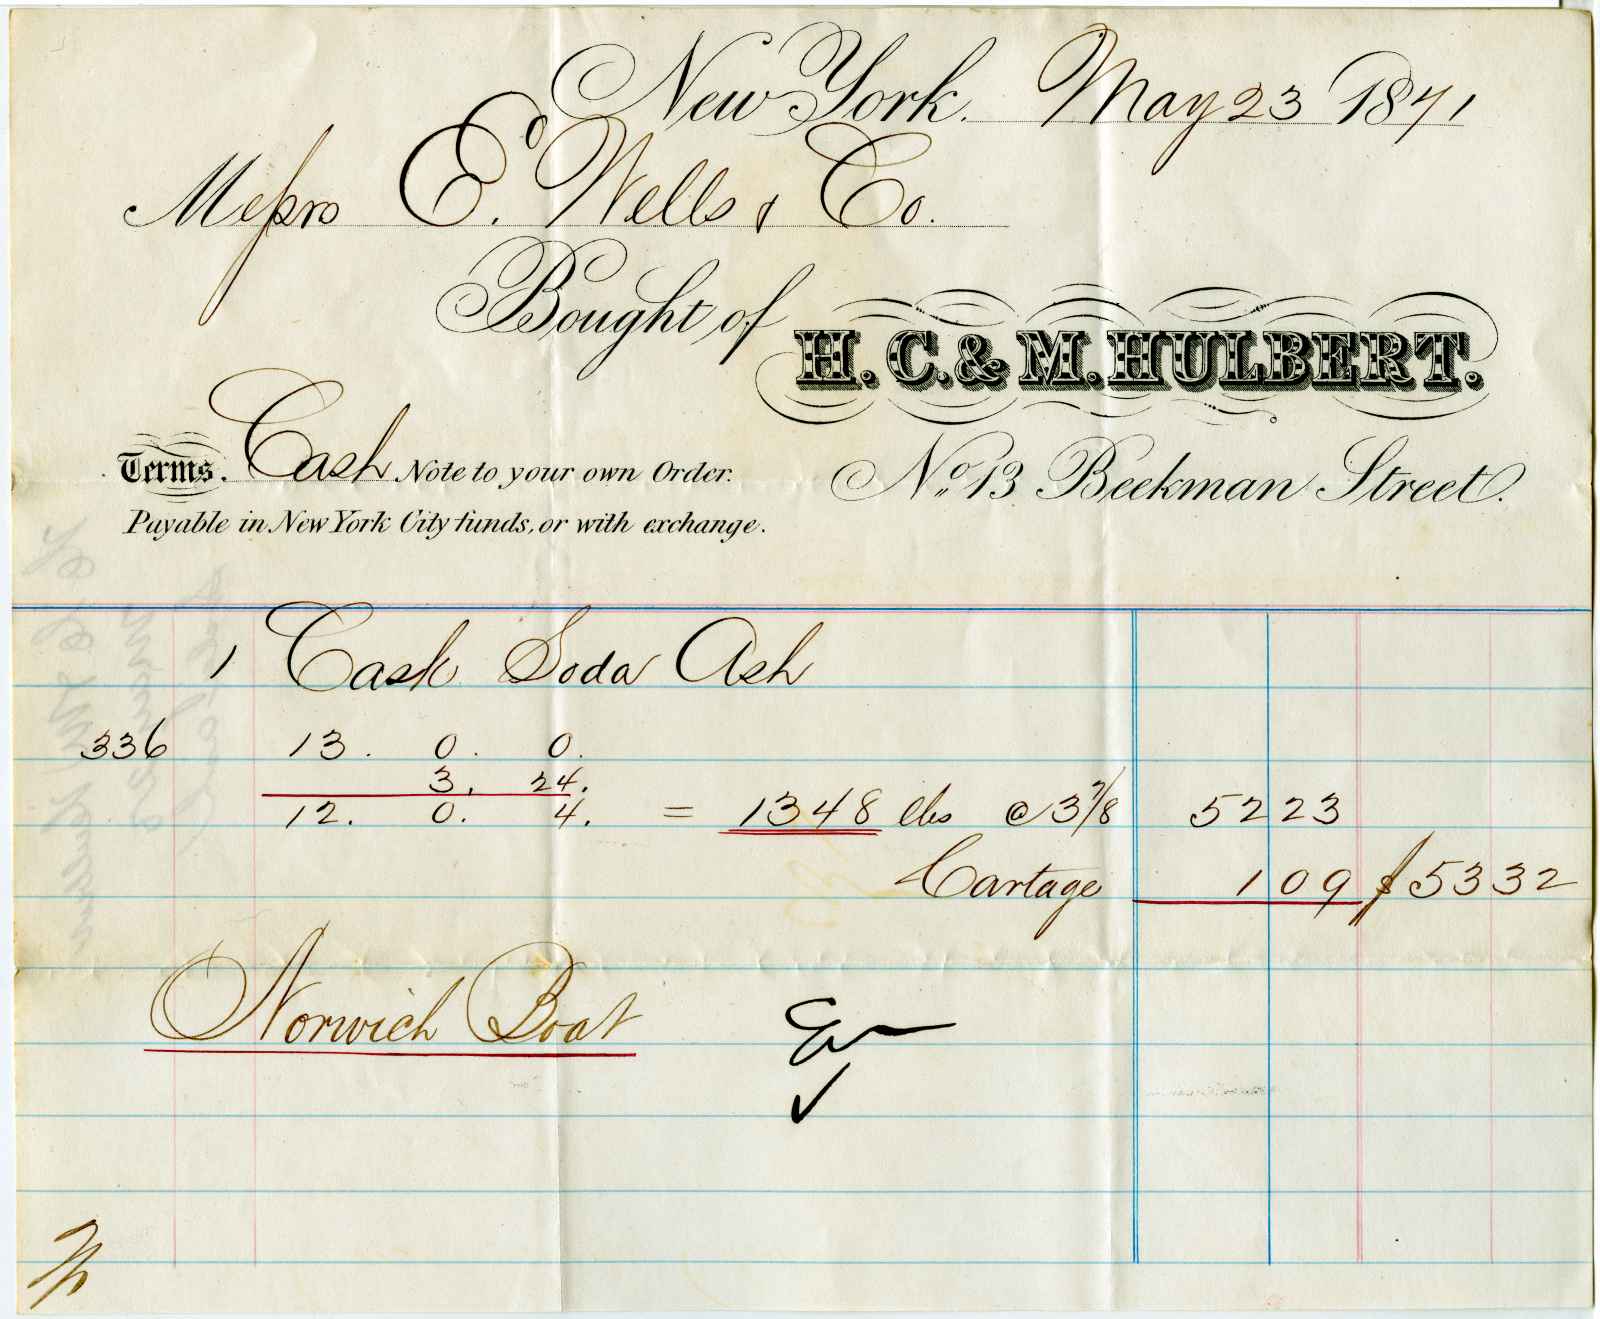 New York. May 23 1871
Messrs E. Wells & Co.
Bought of H. C. & M. HULBERT.
Terms. Cash Note to your own Order. No. 13 Beekman Street.
Payable in New York City funds, or with exchange.
1 Cask Soda Ash
336 13. 0. 0.
3. 24.
12. 0. 4. = 1348 lbs @ 3 7/8 5223
Cartage 109 $5332
Norwich Boat